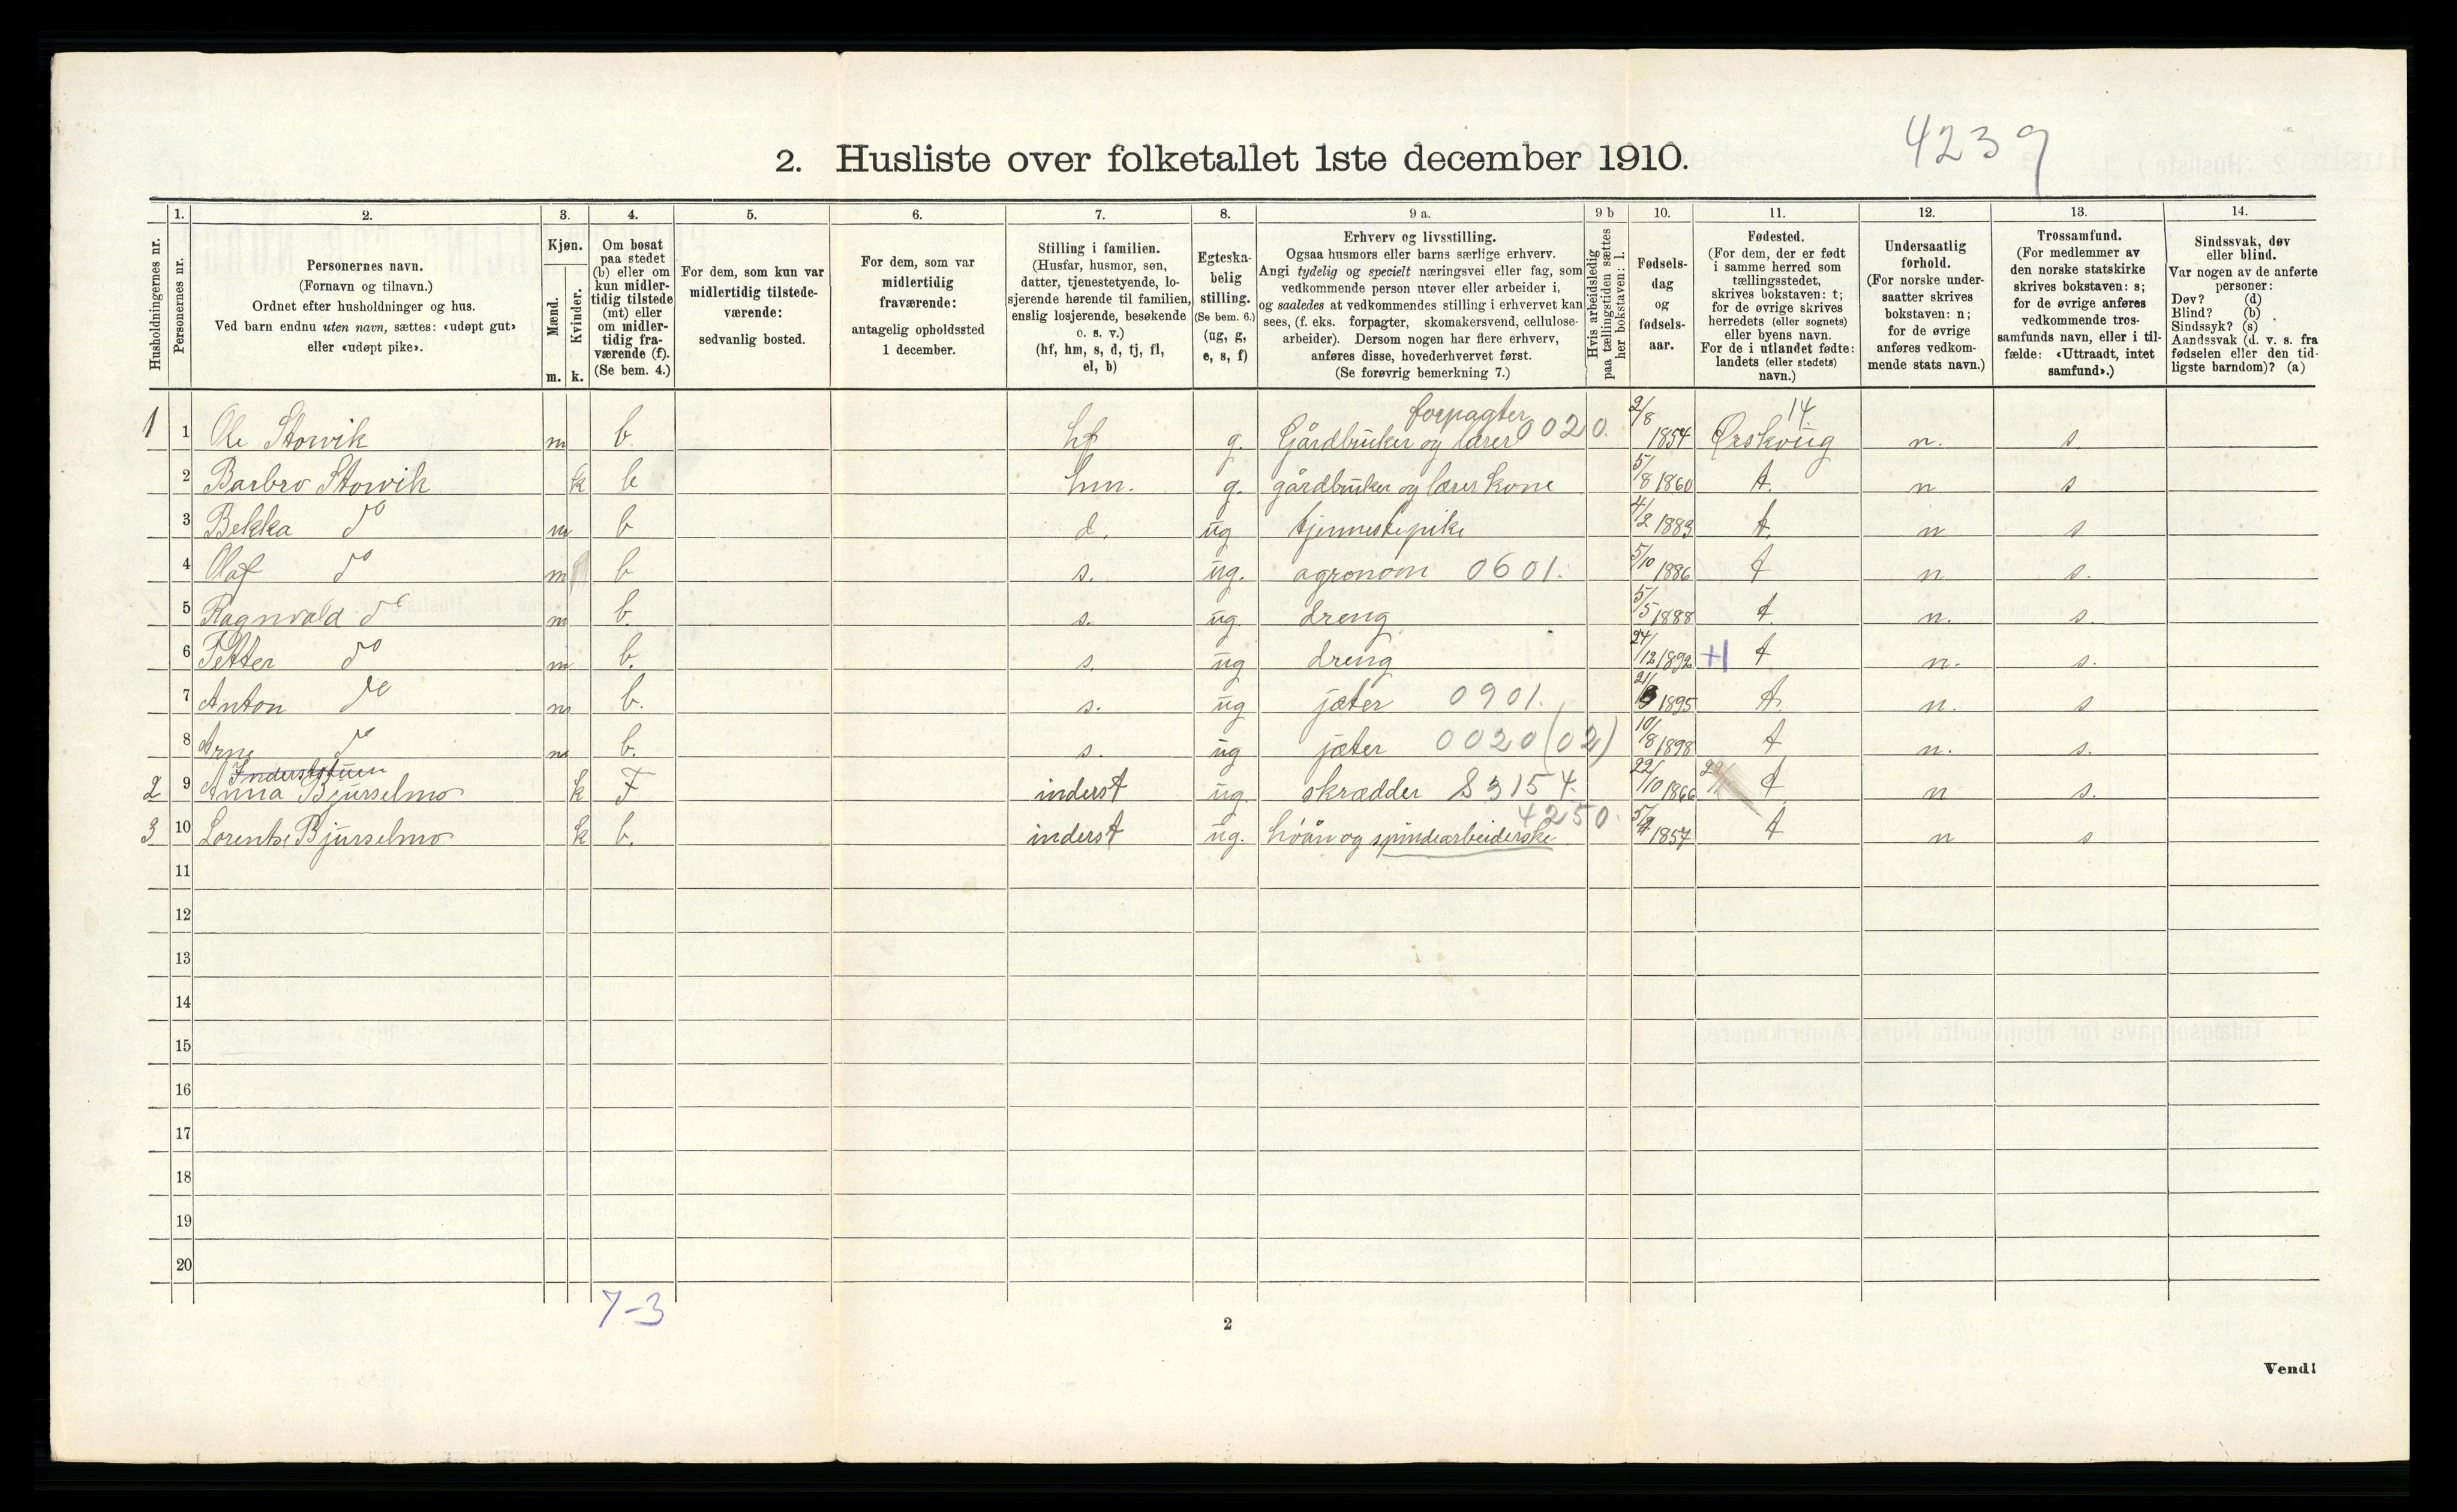 4239
2. Husliste over folketallet 1ste december 1910.
Husholdningernes nr.
1. Personernes nr.
2. Personernes navn. (Fornavn og tilnavn.) Ordnet efter husholdninger og hus. Ved barn endnu uten navn, sættes: «udøpt gut» eller «udøpt pike».
3. Kjøn. Mænd. m. Kvinder. k.
4. Om bosat paa stedet (b) eller om kun midlertidig tilstede (mt) eller om midlertidig fraværende (f). (Se bem. 4.)
5. For dem, som kun var midlertidig tilstedeværende: sedvanlig bosted.
6. For dem, som var midlertidig fraværende: antagelig opholdssted 1 december.
7. Stilling i familien. (Husfar, husmor, søn, datter, tjenestetyende, losjerende hørende til familien, enslig losjerende, besøkende o. s. v.) (hf, hm, s, d, tj, fl, el, b)
8. Egteskabelig stilling. (Se bem. 6.) (ug, g, e, s, f)
9 a. Erhverv og livsstilling. Ogsaa husmors eller barns særlige erhverv. Angi tydelig og specielt næringsvei eller fag, som vedkommende person utøver eller arbeider i, og saaledes at vedkommendes stilling i erhvervet kan sees, (f. eks. forpagter, skomakersvend, cellulosearbeider). Dersom nogen har flere erhverv, anføres disse, hovederhvervet først. (Se forøvrig bemerkning 7.)
9 b Hvis arbeidsledig paa tællingstiden sættes her bokstaven: l.
10. Fødselsdag og fødselsaar.
11. Fødested. (For dem, der er født i samme herred som tællingsstedet, skrives bokstaven: t; for de øvrige skrives herredets (eller sognets) eller byens navn. For de i utlandet fødte: landets (eller stedets) navn.)
12. Undersaatlig forhold. (For norske undersaatter skrives bokstaven: n; for de øvrige anføres vedkommende stats navn.)
13. Trossamfund. (For medlemmer av den norske statskirke skrives bokstaven: s; for de øvrige anføres vedkommende trossamfunds navn, eller i tilfælde: «Uttraadt, intet samfund».)
14. Sindssvak, døv eller blind. Var nogen av de anførte personer: Døv? (d) Blind? (b) Sindssyk? (s) Aandssvak (d. v. s. fra fødselen eller den tidligste barndom)? (a)
forpagter 14.
1 1 Ole Stowik m b. hf g. Gårdbruker og lærer 0020. 2/8 1854 Ørskoug n. s.
2 Barbro Stowik k b hm. g. gårdbruker og lærer kone 5/8 1860 t. n s
3 Bekka do m b d. ug tjennestepike 4/2 1883 t. n s
4 Olaf do m b s. ug. agronom 0601. 5/10 1886 t n s.
5 Ragnvald do m b. s. ug. dreng 5/5 1888 t. n. s.
6 Petter do m b. s. ug dreng 24/12 1892 t n. s.
7 Anton do m b. s. ug jæter 0901. 21/3 1895 t. n. s
8 Arne do m b. s. ug jæter 0020 (02) 10/8 1898 t n. s.
Inderststuen
2 9 Anna Bjurselmo k F inderst ug. skrædder S3154. 22/10 1866 t n s.
4250.
3 10 Lorentse Bjurselmo k b. inderst ug. håån og spindearbeiderske 1857 t n s
11
12
13
14
15
16
17
18
19
20
7-3
2
Vend!